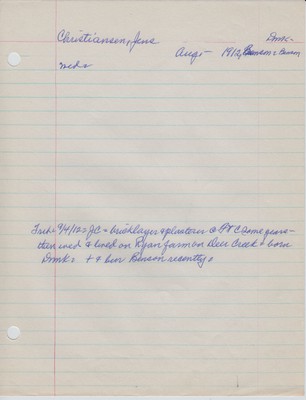 Christiansen, Jens Dmk=
Aug= 1912, Benson = Benson
meds
9/4/12 = JC = bricklayer & plasterer @ PVC some years=
then wed & lived on Ryan farm on Deer Creek = born
Dmk = + & bur Benson recently =